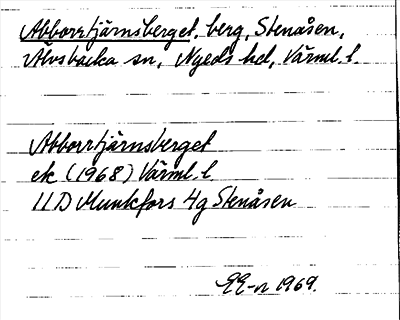 Abborrtjärnsberget, berg, Stenåsen,
Älvsbacka sn, Nyeds hd, Värml. l.
Abborrtjärnsberget
ek (1968) Värml. l.
11D Munkfors 4g Stenåsen
EE-n 1969.